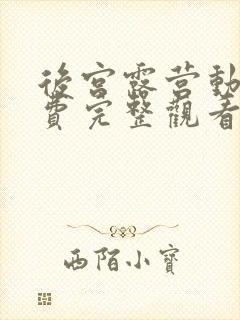 後宮露营動
費完整觀看
西陌小寶